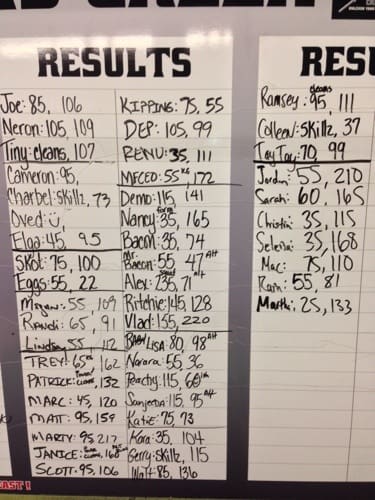 RESULTS
Joe: 85, 106
Neron: 105, 109
Tiny: cleans, 107
Cameron: 95,
Charbel: Skillz, 73
Dved:
Elga: 45, 95
Skot: 75, 100
Eggs: 55, 22
Megan: 55, 109
Randi: 65, 91
Lindsey: 55, 112
TREY: 65, 162
PATRICK: 132
MARC: 45, 120
MATT: 95, 159
MARTY: 95, 217
JANICE: 160
SCOTT: 95, 106
KIPPING: 75, 55
DEP: 105, 99
RENU: 35, 111
MFCEO: 55, 172
Demo: 115, 141
Nancy: 35, 165
Bacon: 35, 74
Mr. Bacon: 55, 47
Alex: 235, 71
Ritchie: 145, 128
Vlad: 155, 220
LISA: 80, 98
Narara: 55, 36
Peachy: 115, 60
Sanjeeta: 115, 95
Katie: 75, 73
Kara: 35, 104
Gerry: Skillz, 115
Watt: 85, 136
RESU
cleans
Ramsey: 95, 111
Colleen: Skillz, 37
Tay Tay: 70, 99
Jordin: 55, 210
Sarah: 60, 165
Christin: 35, 115
Selena: 35, 168
Mac: 75, 110
Ram: 55, 81
Martha: 25, 133
FAST!